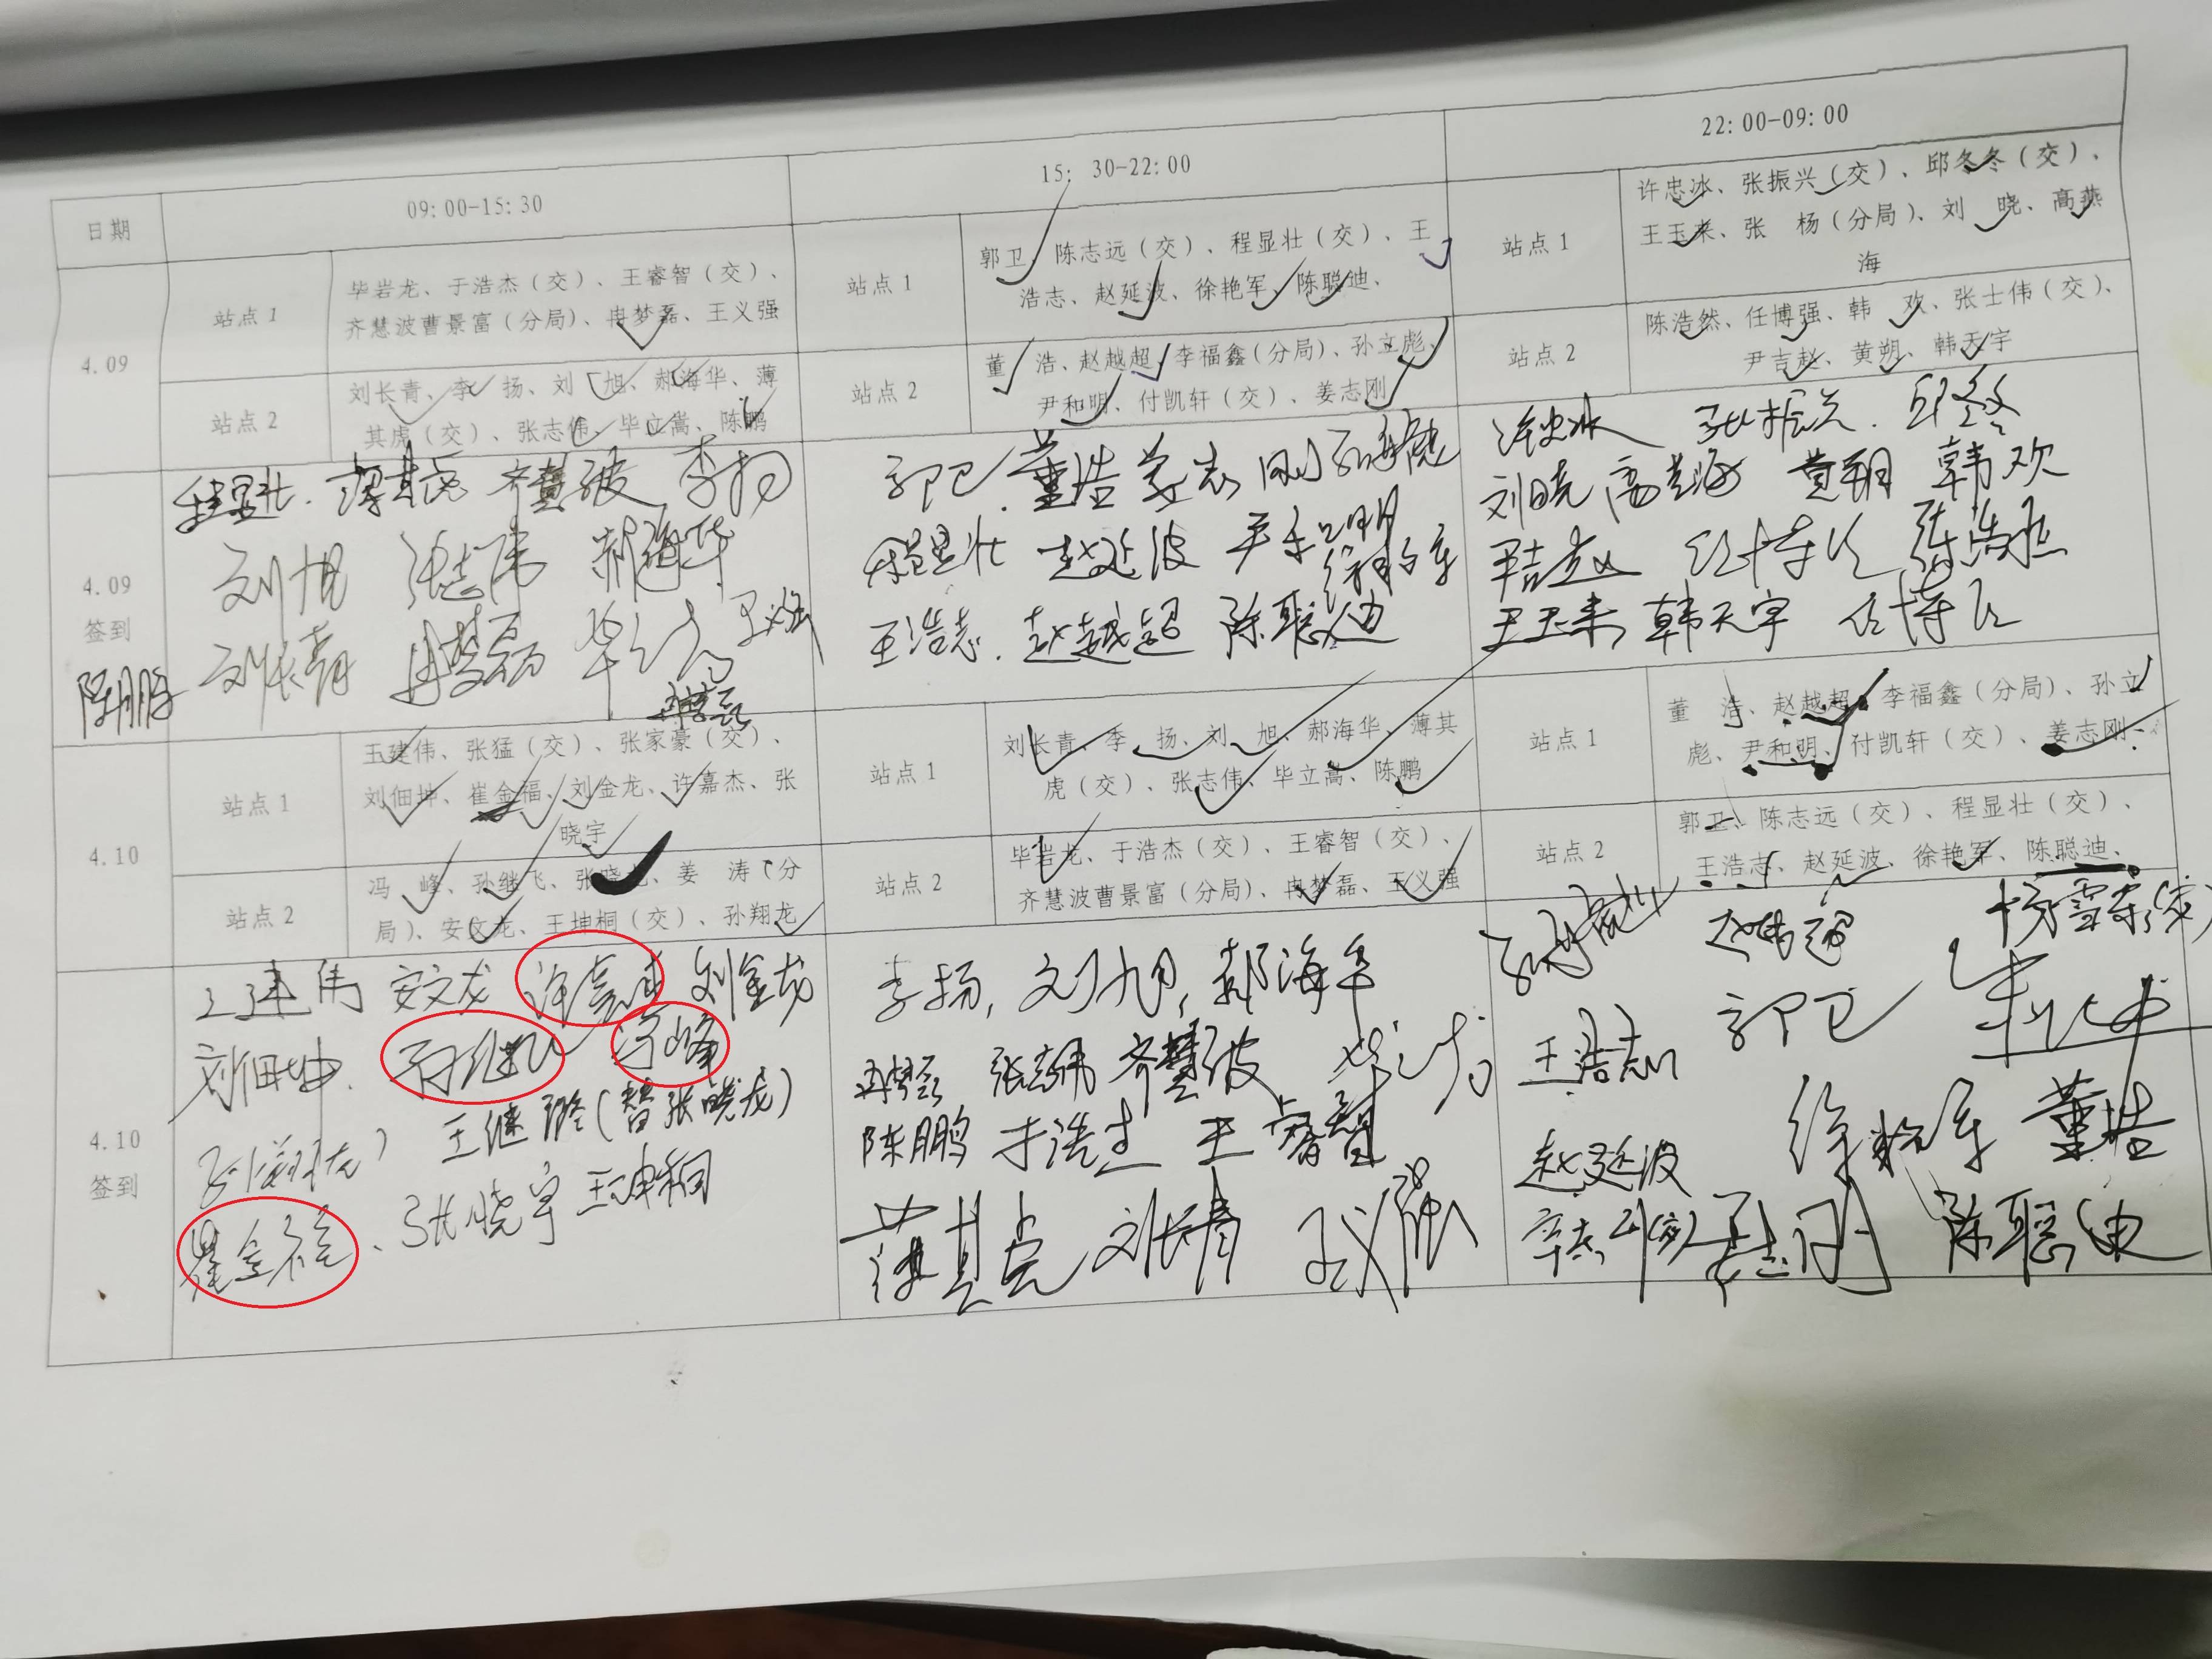 日期
09:00-15:30
15:30-22:00
22:00-09:00
4.09
站点1
毕岩龙、于浩杰(交)、王睿智(交)、
齐慧波曹景富(分局)、冉梦磊、王义强
站点1
郭卫、陈志远(交)、程显壮(交)、王
浩志、赵延波、徐艳军、陈聪迪、
站点1
许忠冰、张振兴(交)、邱冬冬(交)、
王玉来、张 杨(分局)、刘 晓、高燕
海
站点2
刘长青、李 扬、刘 旭、郝海华、薄
其虎(交)、张志伟、毕立嵩、陈鹏
站点2
董 浩、赵越超、李福鑫(分局)、孙立彪、
尹和明、付凯轩(交)、姜志刚
站点2
陈浩然、任博强、韩 欢、张士伟(交)、
尹吉赵、黄朔、韩天宇
4.09
签到
程显壮. 薄其虎 齐慧波 李扬
刘旭 张志伟 郝海华
刘长青 冉梦磊 毕立嵩 王义强
陈鹏
冉梦磊
郭卫 董浩 姜志刚 孙立彪
程显壮 赵延波 尹和明 徐艳军
王浩志. 赵越超 陈聪迪
许忠冰 张振兴. 邱冬冬
刘晓 高燕海 黄朔 韩欢
尹吉赵 任博强 陈浩然
王玉来 韩天宇 任博强
4.10
站点1
王建伟、张猛(交)、张家豪(交)、
刘佃坤、崔金福、刘金龙、许嘉杰、张
晓宇
站点1
刘长青、李 扬、刘 旭、郝海华、薄其
虎(交)、张志伟、毕立嵩、陈鹏
站点1
董 浩、赵越超、李福鑫(分局)、孙立
彪、尹和明、付凯轩(交)、姜志刚
站点2
冯 峰、孙继飞、张晓龙、姜 涛(分
局)、安文龙、王坤桐(交)、孙翔龙
站点2
毕岩龙、于浩杰(交)、王睿智(交)、
齐慧波曹景富(分局)、冉梦磊、王义强
站点2
郭卫、陈志远(交)、程显壮(交)、
王浩志、赵延波、徐艳军、陈聪迪、
4.10
签到
王建伟 安文龙 许嘉杰 刘金龙
刘佃坤. 孙继飞 冯峰
孙翔龙 王继璐(替张晓龙)
崔金福、张晓宇 王坤桐
李扬, 刘旭, 郝海华
冉梦磊 张志伟 齐慧波 毕立嵩
陈鹏 于浩杰 王睿智
薄其虎 刘长青 王义强
孙立彪 赵越超
王浩志 郭卫
赵延波 徐艳军 董浩
姜志刚 陈聪迪